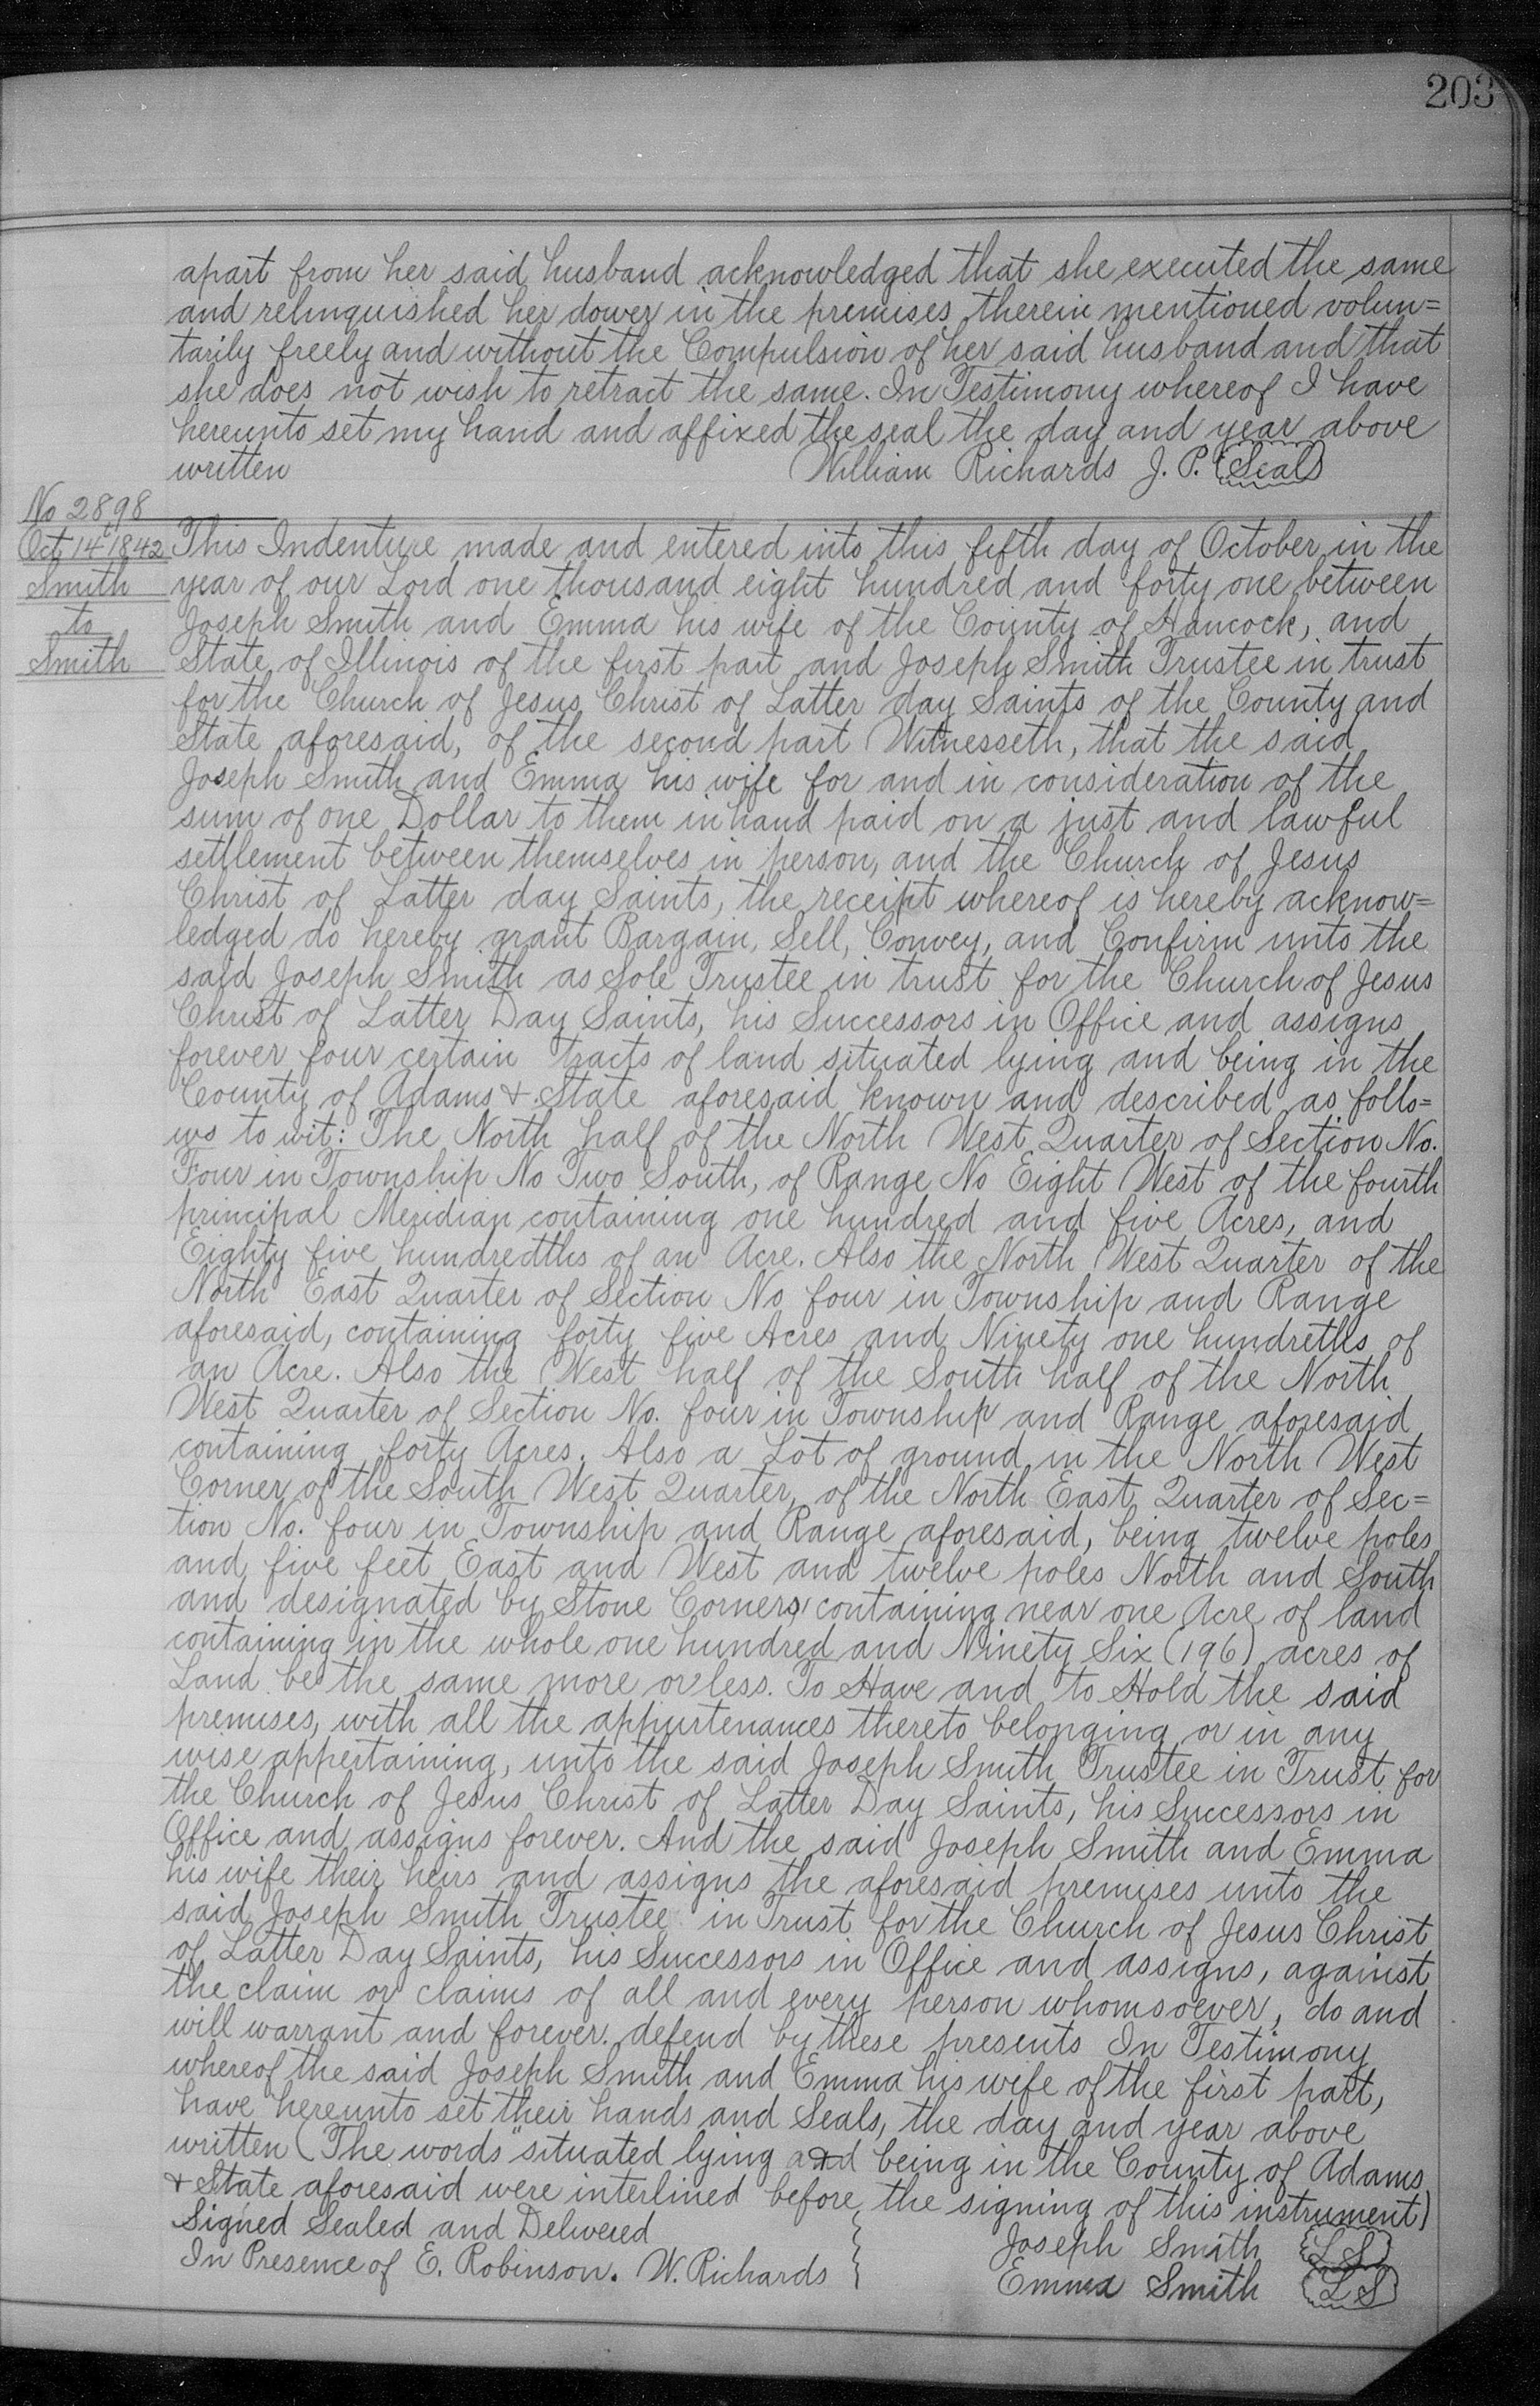 203
apart from her said husband acknowledged that she executed the same
and relinquished her dower in the premises therein mentioned volun=
tarily freely and without the Compulsion of her said husband and that
she does not wish to retract the same. In Testimony whereof I have
hereunto set my hand and affixed the seal the day and year above
written William Richards J. P. (Seal)
No 2898
Oct 14th 1842
Smith
to
Smith
This Indenture made and entered into this fifth day of October in the
year of our Lord one thousand eight hundred and forty one between
Joseph Smith and Emma his wife of the County of Hancock, and
State of Illinois of the first part and Joseph Smith Trustee in trust
for the Church of Jesus Christ of Latter day Saints of the County and
State aforesaid, of the second part Witnesseth, that the said
Joseph Smith and Emma his wife for and in consideration of the
sum of one Dollar to them in hand paid on a just and lawful
settlement between themselves in person, and the Church of Jesus
Christ of Latter day Saints, the receipt whereof is hereby acknow=
ledged do hereby grant Bargain, Sell, Convey, and Confirm unto the
said Joseph Smith as Sole Trustee in trust for the Church of Jesus
Christ of Latter Day Saints, his Successors in Office and assigns
forever four certain tracts of land situated lying and being in the
County of Adams & State aforesaid known and described as follo=
ws to wit: The North half of the North West Quarter of Section No.
Four in Township No Two South, of Range No Eight West of the fourth
principal Meridian containing one hundred and five Acres, and
Eighty five hundredths of an Acre. Also the North West Quarter of the
North East Quarter of Section No four in Township and Range
aforesaid, containing forty five Acres and Ninety one hundreths of
an Acre. Also the West half of the South half of the North
West Quarter of Section No. four in Township and Range aforesaid
containing forty Acres. Also a Lot of ground in the North West
Corner of the South West Quarter, of the North East Quarter of Sec=
tion No. four in Township and Range aforesaid, being twelve poles
and five feet East and West and twelve poles North and South
and designated by Stone Corners, containing near one Acre of land
containing in the whole one hundred and Ninety Six (196) acres of
Land be the same more or less. To Have and to Hold the said
premises, with all the appurtenances thereto belonging or in any
wise appertaining, unto the said Joseph Smith Trustee in Trust for
the Church of Jesus Christ of Latter Day Saints, his Successors in
Office and assigns forever. And the said Joseph Smith and Emma
his wife their heirs and assigns the aforesaid premises unto the
said Joseph Smith Trustee in Trust for the Church of Jesus Christ
of Latter Day Saints, his Successors in Office and assigns, against
the claim or claims of all and every person whomsoever, do and
will warrant and forever. defend by these presents In Testimony
whereof the said Joseph Smith and Emma his wife of the first part,
have hereunto set their hands and Seals, the day and year above
written (The words "situated lying and being in the County of Adams
& State aforesaid were interlined before the signing of this instrument)
Signed Sealed and Delivered
In Presence of E. Robinson. W. Richards
Joseph Smith LS
Emma Smith LS